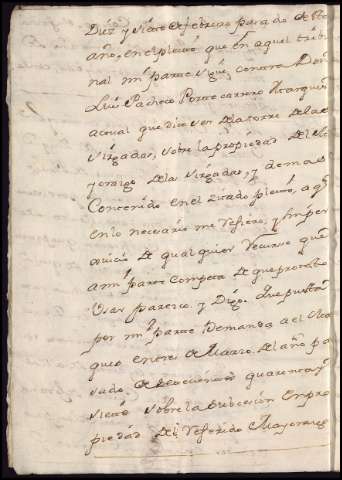 Diez y siete de febrero pasado de este
año, en el pleito que en aquel tribu
nal mi parte sigue contra Don
Luis Pacheco Portocarrero Marques
actual que dice ser de la torre de las
Virgadas, sobre la propiedad del
de la Virgadas, y demas
Contenido en el citado pleito, a q
en lo necesario me refiero, y sin per
juicio de qualquier recurso que
a mi parte competa de que protexto
Usar parezco y Digo: Que puesta
por mi parte Demanda a el Mar
ques en tres de Marzo del año pa
sado de setecientos quarenta y
siete sobre la subcesion en pro
piedad del referido Mayorazgo